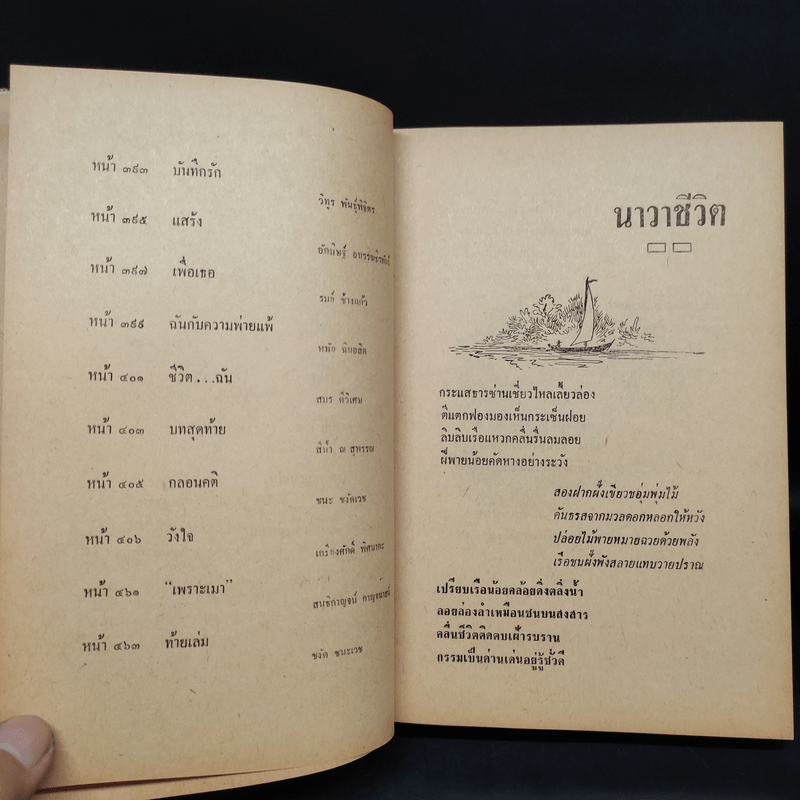 หน้า ๓๙๓ บันทึกรัก
วิทูร พันธุ์พิจิตร
หน้า ๓๙๕ แสร้ง
หน้า ๓๙๗ เพื่อเธอ
หน้า ๓๙๙ ฉันกับความพ่ายแพ้
หน้า ๔๐๑ ชีวิต...ฉัน
สมร ดีวิเศษ
หน้า ๔๐๓ บทสุดท้าย
สีน้ำ ณ สุพรรณ
หน้า ๔๐๕ กลอนคติ
ชนะ ชงัดเวช
หน้า ๔๐๖ วังใจ
เกรียงศักดิ์
หน้า ๔๖๑ “เพราะเมา”
หน้า ๔๖๓ ท้ายเล่ม
ชงัด ชนะเวช
นาวาชีวิต
กระแสธารซ่านเชี่ยวไหลเลี้ยวล่อง
ตีแตกฟองมองเห็นกระเซ็นฝอย
ลิบลิบเรือแหวกคลื่นรื่นลมลอย
ผีพายน้อยคัดหางอย่างระวัง
สองฝากฝั่งเขียวชอุ่มพุ่มไม้
คันธรสจากมวลดอกหลอกให้หวัง
ปล่อยไม้พายหมายฉวยด้วยพลัง
เรือชนฝั่งพังสลายแทบวายปราณ
เปรียบเรือน้อยคล้อยดิ่งตลิ่งน้ำ
ลอยล่องลำเหมือนชนบนสงสาร
คลื่นชีวิตติดตบเฝ้ารบราน
กรรมเป็นด่านเด่นอยู่รู้ชั่วดี